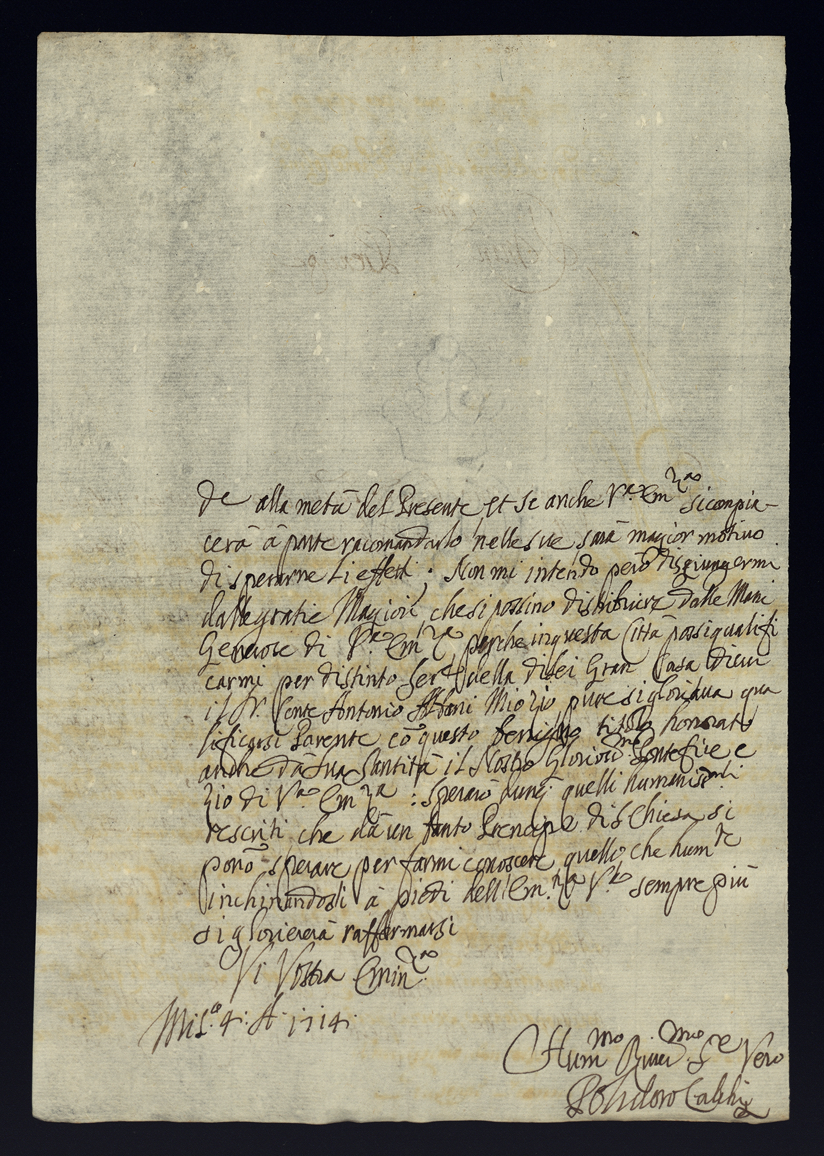 de alla metà del Presente et se anche V.ra Em.za si compia-
cerà à parte racomandarlo nelle sue sarà magior motivo
di sperarne li effetti : Non mi intendo però disgiungermi
dalle gratie Magiori, che si possino distribuire dalle Mani
Generose di V.ra Em.za perche in questa Città possi qualifi
carmi per distinto Ser.re della di lei Gran Casa di cui
il S.r Conte Antonio Albani Mio Zio pure si gloriava qua
lificarsi Parente cõ questo benigno titolo honorato
anche dà Sua Santità il Nostro Glorios.mo Pontefice e
Zio di V.ra Em.za : sperarò dunq quelli humaniss.mi
rescritti che dà un tanto Prencipe di S Chiesa si
ponõ sperare per farmi conoscere quello che hum.te
inchinandosi à piedi dell Em.za V.ra sempre più
si glorierà raffermarsi
Di Vostra Emin.za
Mil.o 4: A 1714.
Hum.mo Devot.mo Se.e Vero
Polidoro Calchi